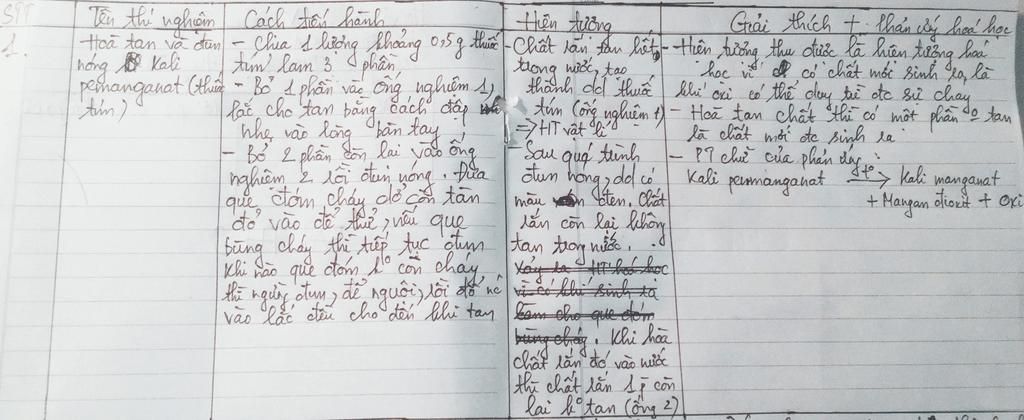 STT
Tên thí nghiệm
Cách tiến hành
Hiện tượng
Giải thích + phản ứng hoá học
1.
Hoà tan và đun
nóng Kali
pemanganat (thuốc
tím)
- Chia 1 lượng khoảng 0,5g thuốc
tím làm 3 phần
- Bỏ 1 phần vào ống nghiệm 1,
lắc cho tan bằng cách đập
nhẹ vào lòng bàn tay
- Bỏ 2 phần còn lại vào ống
nghiệm 2 rồi đun nóng. Đưa
que đóm cháy dở còn tàn
đỏ vào để thử, nếu que
bùng cháy thì tiếp tục đun
Khi nào que đóm ko còn cháy
thì ngừng đun, để nguội, rồi đổ nc
vào lắc đều cho đến khi tan
- Chất rắn tan hết
trong nước, tạo
thành dd thuốc
tím (ống nghiệm 1)
=> HT vật lí
- Sau quá trình
đun nóng, dd có
màu đen. Chất
rắn còn lại không
tan trong nước.
Xảy ra HT hoá học
vì có khí sinh ra
làm cho que đóm
bùng cháy. Khi hoà
chất rắn đó vào nước
thì chất rắn 1 p còn
lại ko tan (ống 2)
- Hiện tượng thu được là hiện tượng hoá
học vì có chất mới sinh ra, là
khí oxi có thể duy trì đc sự cháy
- Hoà tan chất thì có một phần o tan
là chất mới đc sinh ra
- PT chữ của phản ứng :
Kali permanganat to→ Kali manganat
+ Mangan đioxit + oxi